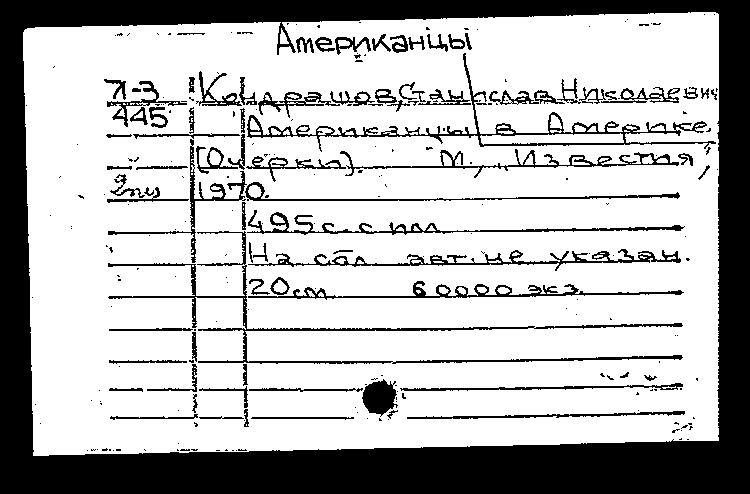 Американцы
Л-3 Кондрашов, Станислав Николаевич
445 Американцы в Америке.
[Очерки]. М., "Известия",
1970.
495 с. с илл.
На обл. авт. не указан.
20 см 60000 экз.